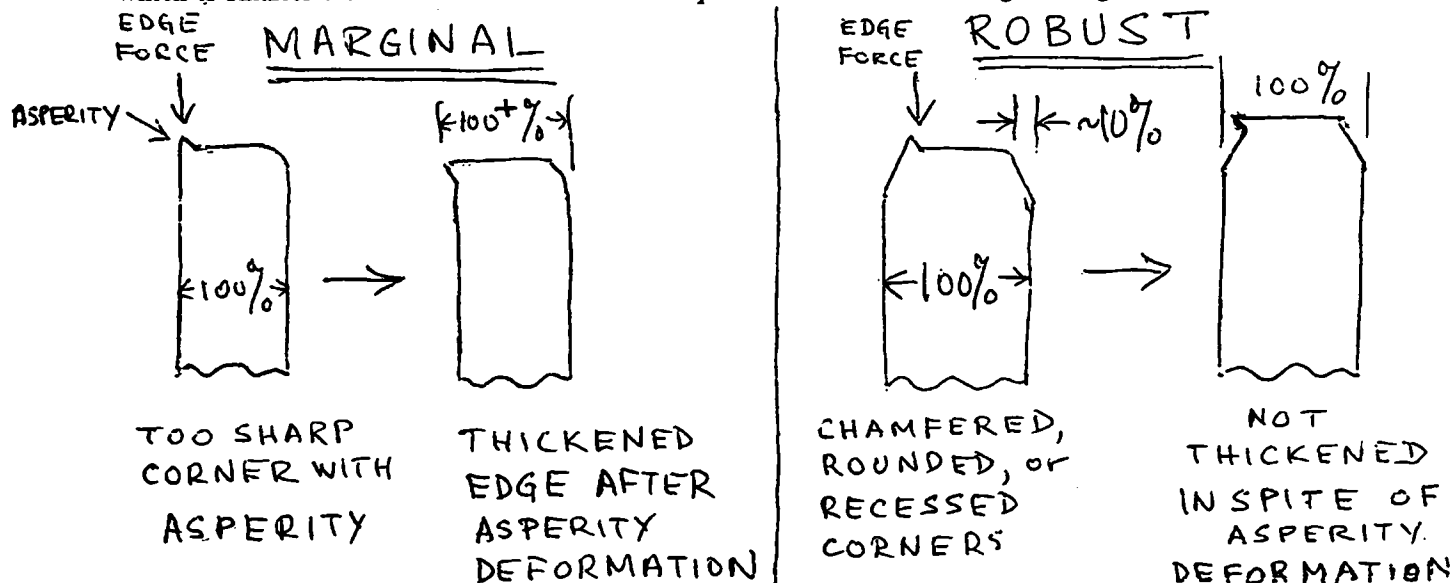 EDGE
FORCE
MARGINAL
ASPERITY
100+%
100%
TOO SHARP
CORNER WITH
ASPERITY
THICKENED
EDGE AFTER
ASPERITY
DEFORMATION
EDGE
FORCE
ROBUST
100%
~10%
100%
CHAMFERED,
ROUNDED, or
RECESSED
CORNERS
NOT
THICKENED
IN SPITE OF
ASPERITY
DEFORMATION